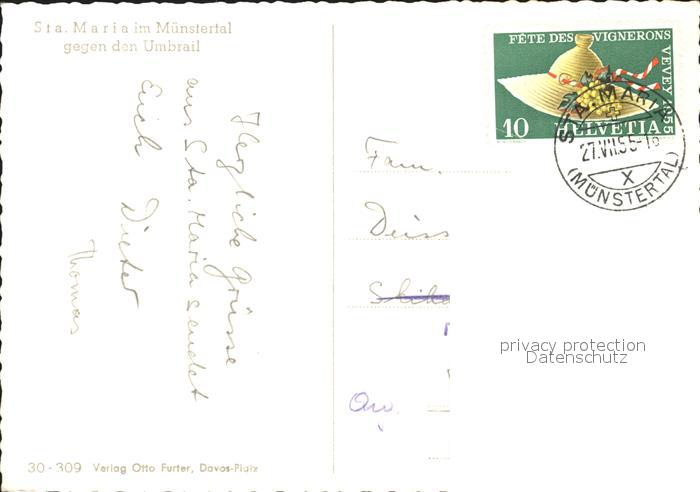 Sta. Maria im Münstertal
gegen den Umbrail
Herzliche Grüsse
aus Sta. Maria sendet
Euch Dieter
Thomas
30-309 Verlag Otto Furter, Davos-Platz
FÊTE DES VIGNERONS
VEVEY 1955
10 HELVETIA
STA. MARIA
27.VII.55-18
X
(MÜNSTERTAL)
Fam.
Deiss
privacy protection
Datenschutz